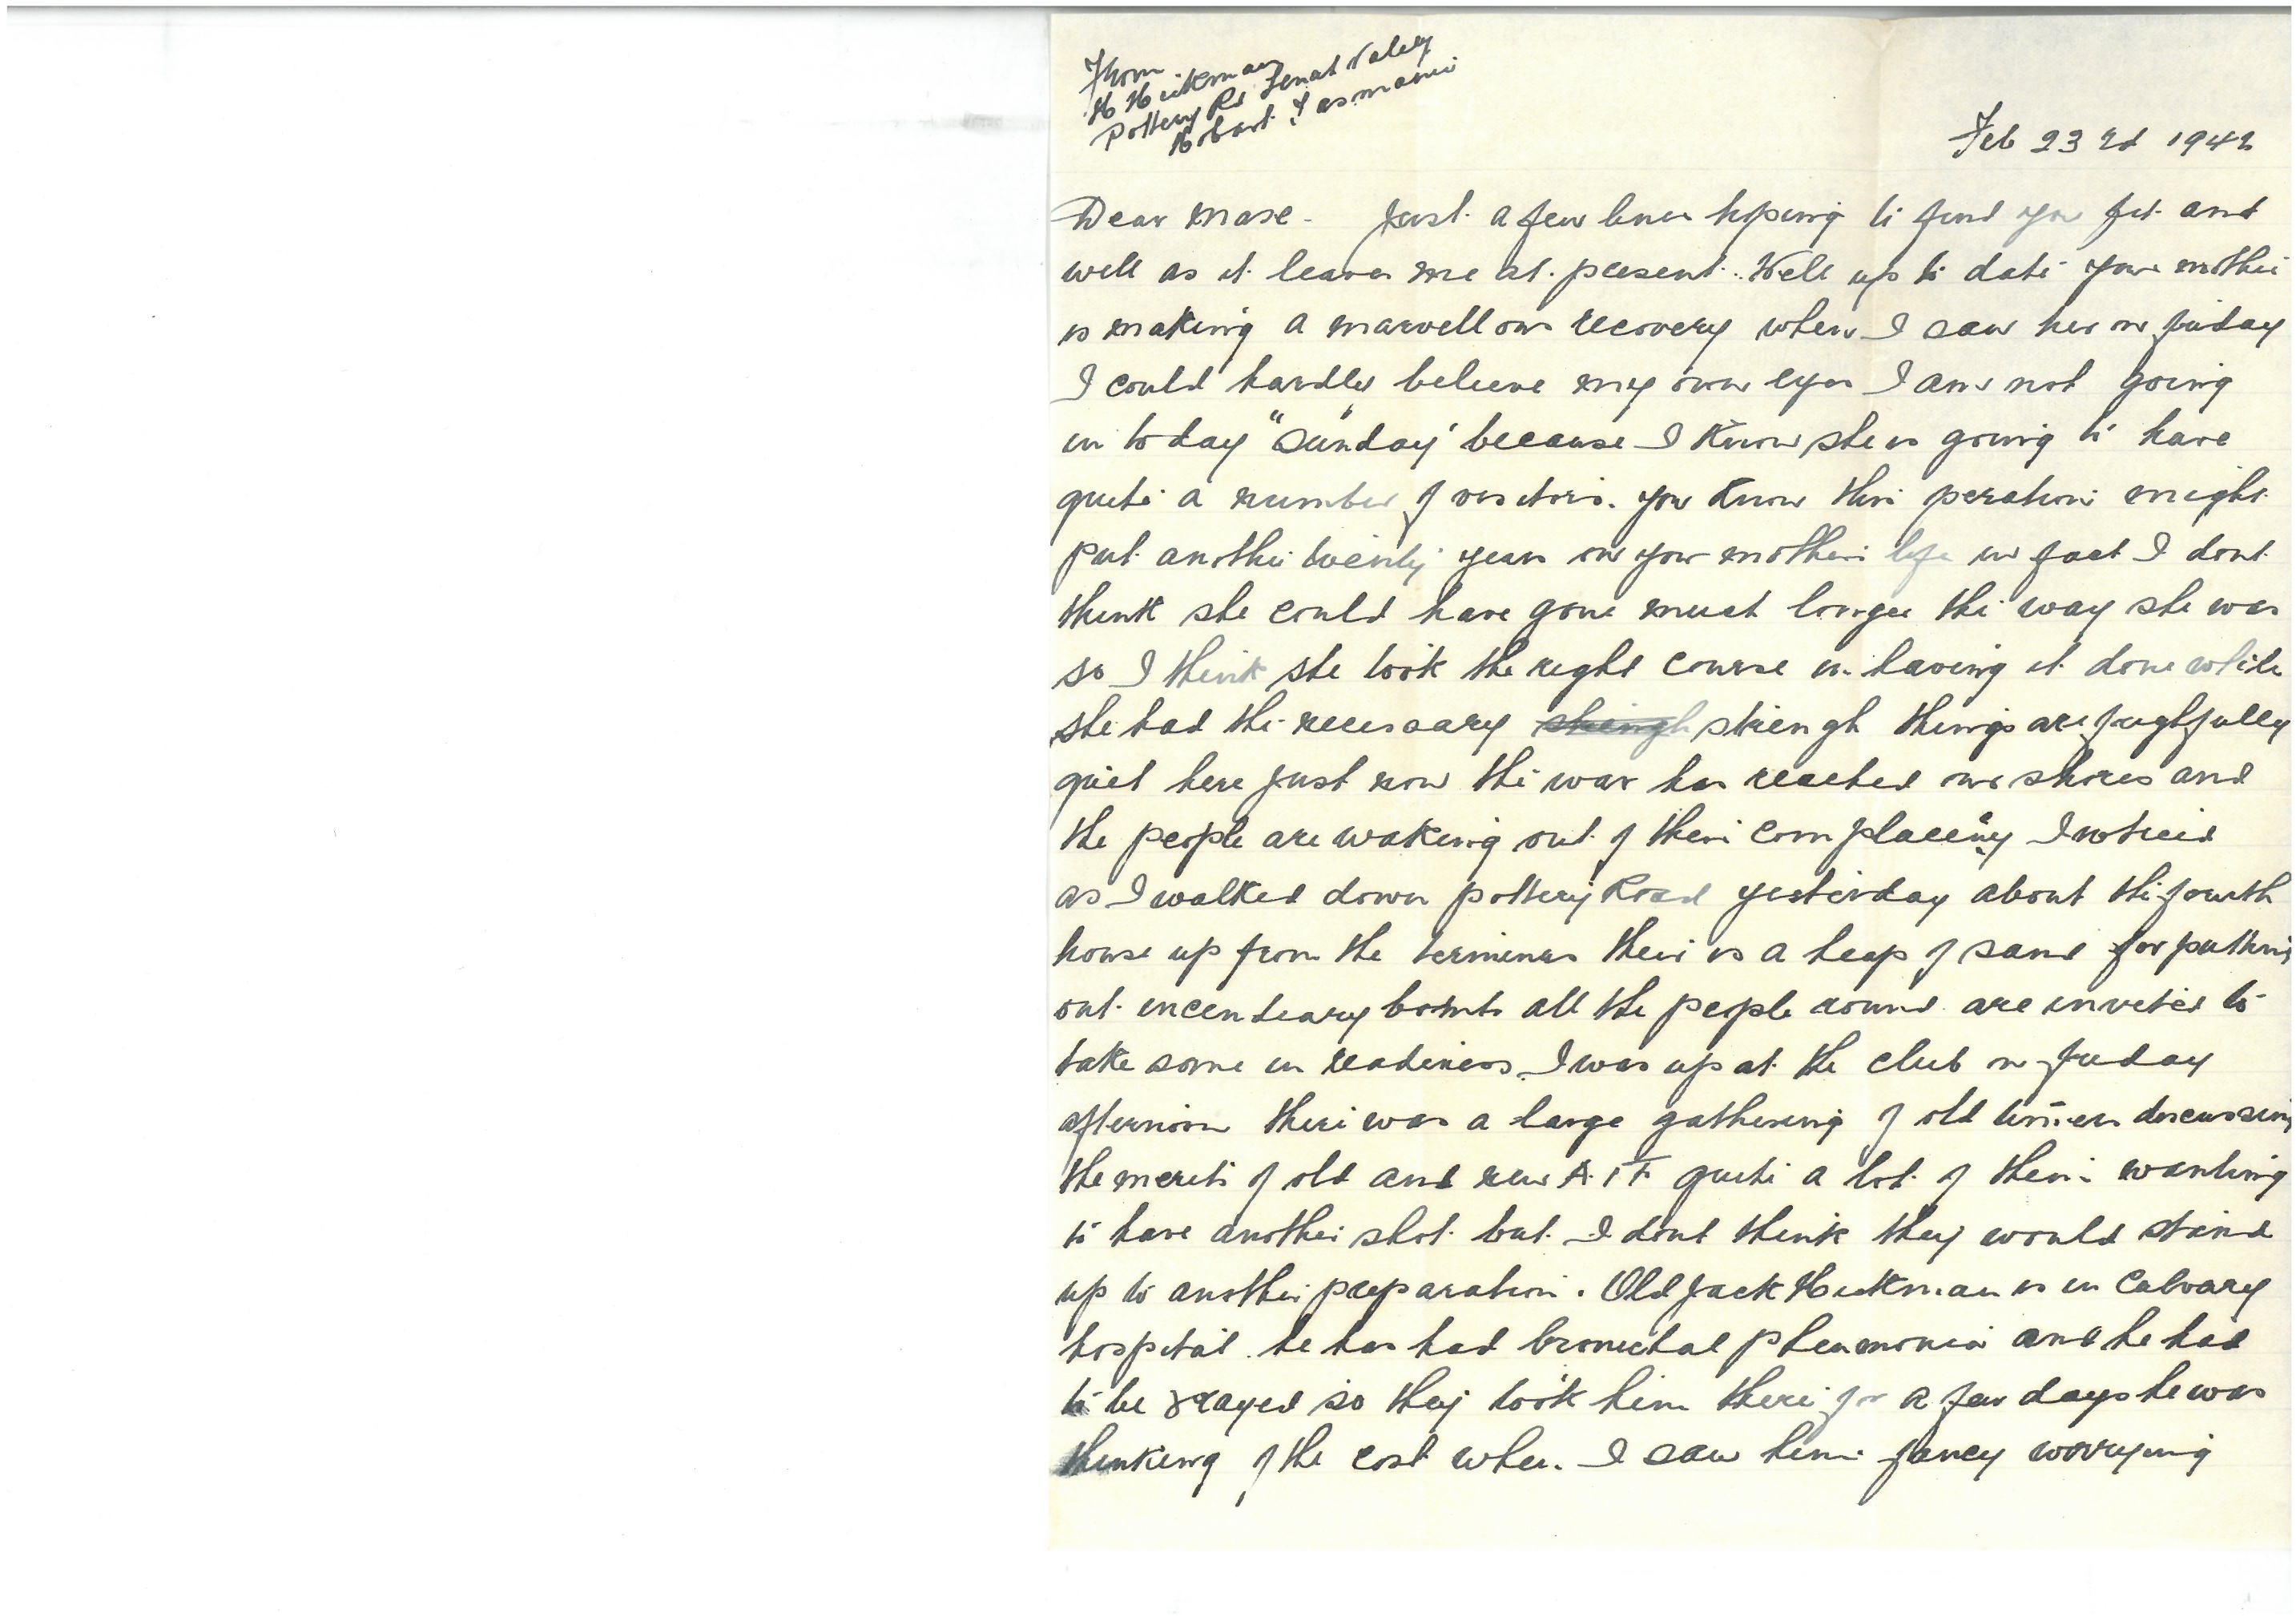 From
H Hickman
Pottery Rd Lenah Valley
Hobart Tasmania
Feb 23rd 1942
Dear Mase - Just a few lines hoping to find you fit and
well as it leaves me at present. Well up to date your mother
is making a marvellous recovery when I saw her on friday
I could hardly believe my own eyes I am not going
in to day "Sunday" because I know she is going to have
quite a number of visitors. you know this peration might
put another twenty years on your mothers life in fact I dont
think she could have gone much longer the way she was
so I think she took the right course in having it done while
she had the necessary strengh things are frightfully
quiet here just now the war has reached our shores and
the people are waking out of their complacency I noticed
as I walked down pottery Road yesterday about the fourth
house up from the terminus their is a heap of sand for putting
out incendeary bombs all the people round are invited to
take some in readiness. I was up at the club on friday
afternoon there was a large gathering of old timers discussing
the merits of old and new A.I.F quite a lot of them wanting
to have another shot but I dont think they would stand
up to another preparation. Old Jack Hickman is in Calvary
hospital. he has had bronichal pheumonia and he had
to be xrayed so they took him there for a few days he was
thinking of the cost when I saw him fancy worrying